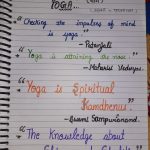 YOGA...
"Checking the impulse of mind
is yoga".
- Patanjali
"Yoga is attaining the pose."
- Maharshi Vedvyas.
"Yoga is Spiritual
Kamdhenu."
- Swami Sampurnanand.
"The Knowledge about